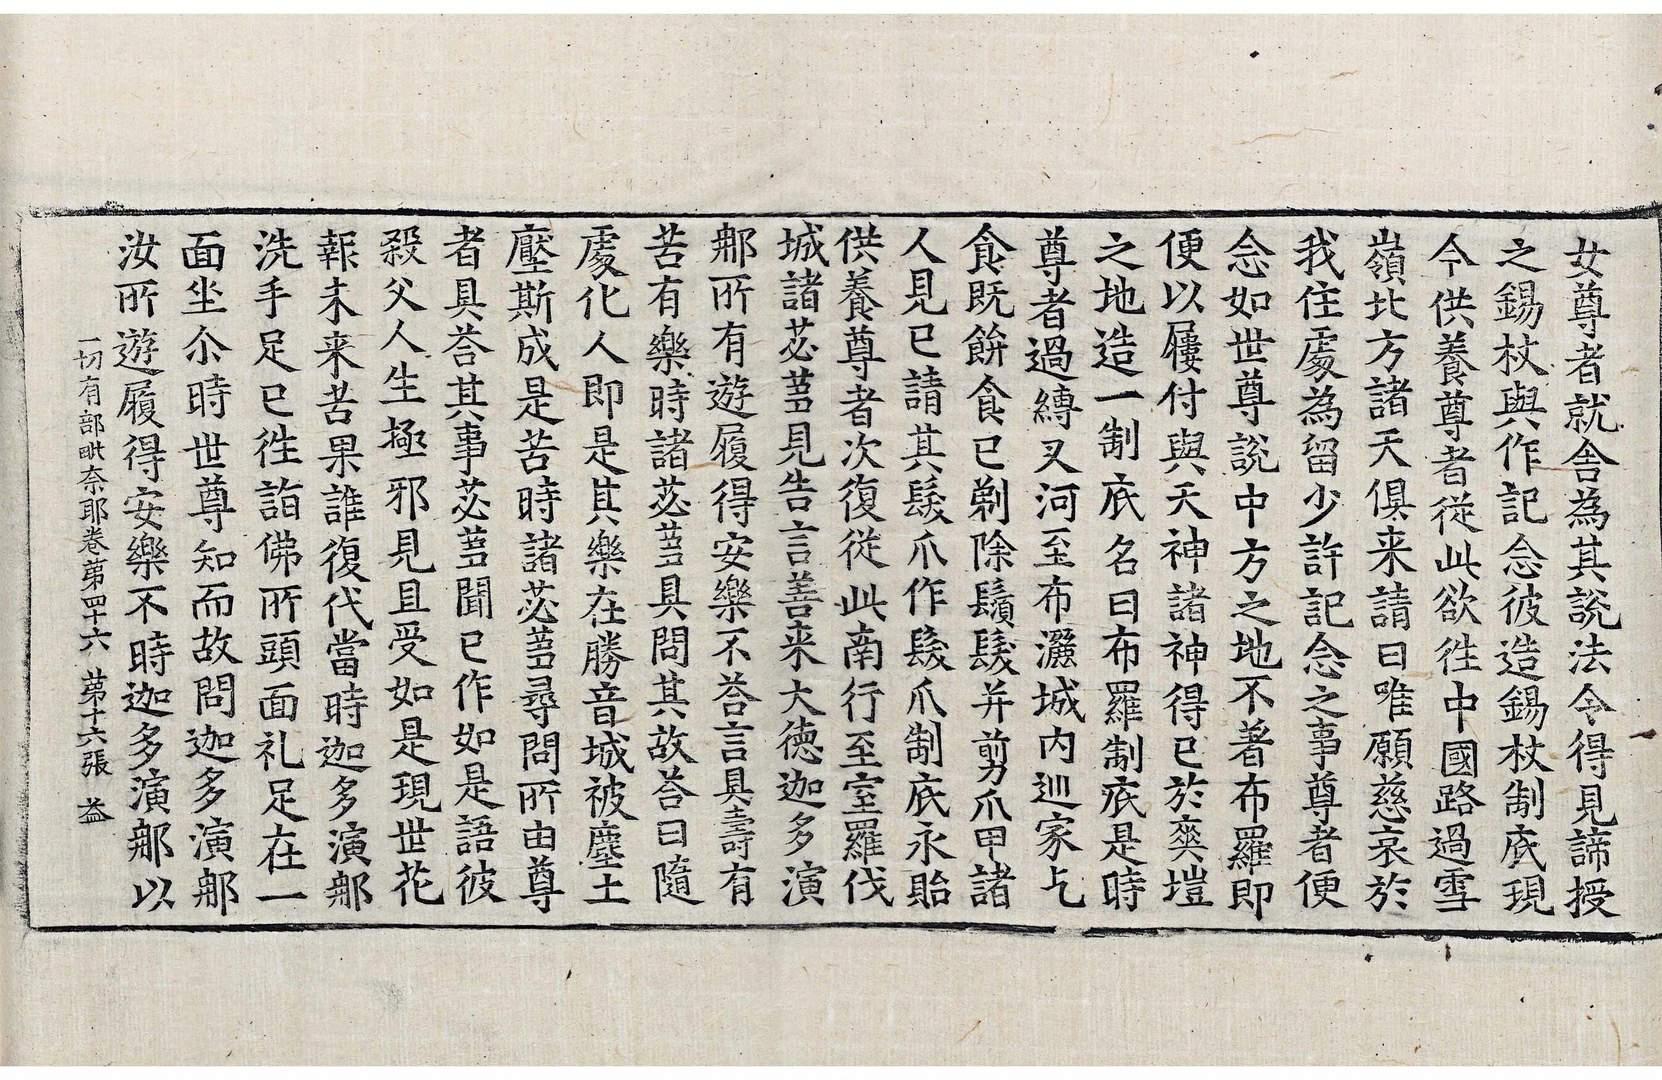 女尊者就舍為其說法令得見諦授
之錫杖與作記念彼造錫杖制底現
今供養尊者從此欲徃中國路過雪
嶺北方諸天俱来請曰唯願慈哀於
我住處為留少許記念之事尊者便
念如世尊說中方之地不著布羅即
便以屨付與天神諸神得已於爽塏
之地造一制底名曰布羅制底是時
尊者過縛叉河至布灑城内巡家乞
食既餅食已剃除鬚髮并剪爪甲諸
人見已請其髮爪作髮爪制底永貽
供養尊者次復從此南行至室羅伐
城諸苾蒭見告言善来大德迦多演
那所有遊履得安樂不荅言具壽有
苦有樂時諸苾蒭具問其故荅曰隨
處化人即是其樂在勝音城被塵土
壓斯成是苦時諸苾蒭尋問所由尊
者具荅其事苾蒭聞已作如是語彼
殺父人生極邪見且受如是現世花
報未来苦果誰復代當時迦多演那
洗手足已徃詣佛所頭面礼足在一
面坐尒時世尊知而故問迦多演那
汝所遊履得安樂不時迦多演那以
一切有部毗奈耶卷第四十六 第十六張 益